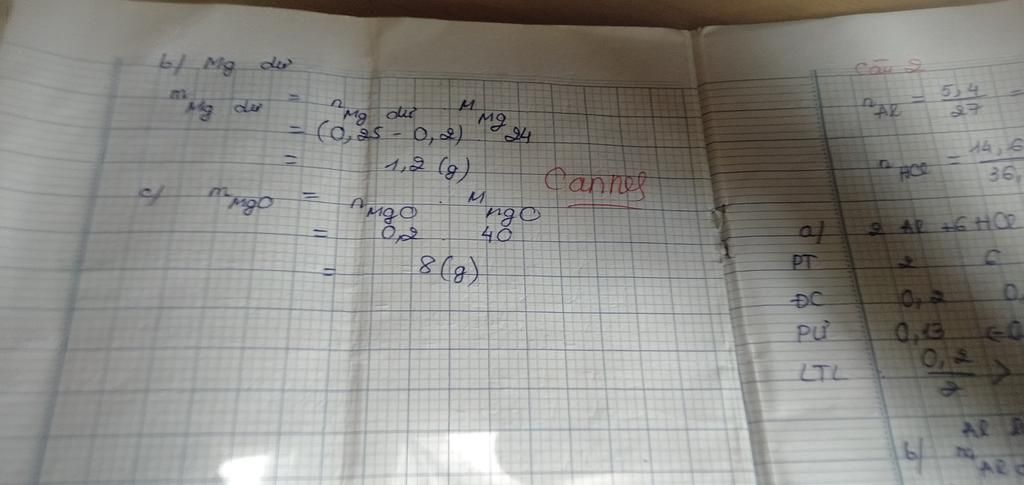 b/ Mg dư
m Mg dư = n Mg dư . M Mg
= (0,25 - 0,2) . 24
= 1,2 (g)
c/ m MgO = n MgO . M MgO
= 0,2 . 40
= 8 (g)
Cannes
Câu 2
n Al = 5,4 / 27 =
n HCl = 14,6 / 36,
a/ 2 Al + 6 HCl
PT 2 6
ĐC 0,2 0,
PƯ 0,13 ←0
LTL 0,2 / 2 >
b/